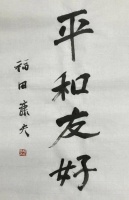 平和友好
福田赳夫